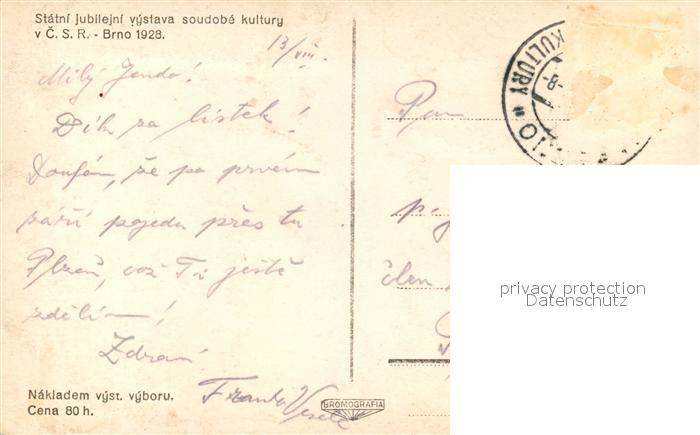 Státní jubilejní výstava soudobé kultury
v Č. S. R. - Brno 1928.
13/VIII.
Milý Jendo!
Dík za lístek!
Doufám, že po prvém
září pojedu přes tu
Plzeň, což Ti ještě
zdělím!
Zdraví
Franta Veselý
Nákladem výst. výboru.
Cena 80 h.
BROMOGRAFIA
KULTURY
-8-
Pan
člen
privacy protection
Datenschutz